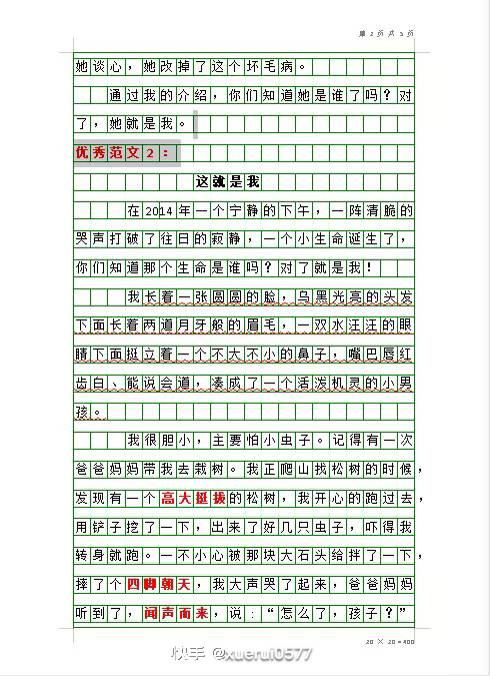 第 2 页 共 3 页
她谈心，她改掉了这个坏毛病。
通过我的介绍，你们知道她是谁了吗？对
了，她就是我。
优秀范文2：
这就是我
在2014年一个宁静的下午，一阵清脆的
哭声打破了往日的寂静，一个小生命诞生了，
你们知道那个生命是谁吗？对了就是我！
我长着一张圆圆的脸，乌黑光亮的头发
下面长着两道月牙般的眉毛，一双水汪汪的眼
睛下面挺立着一个不大不小的鼻子，嘴巴唇红
齿白、能说会道，凑成了一个活泼机灵的小男
孩。
我很胆小，主要怕小虫子。记得有一次
爸爸妈妈带我去栽树。我正爬山找松树的时候，
发现有一个高大挺拔的松树，我开心的跑过去，
用铲子挖了一下，出来了好几只虫子，吓得我
转身就跑。一不小心被那块大石头给拌了一下，
摔了个四脚朝天，我大声哭了起来，爸爸妈妈
听到了，闻声而来，说：“怎么了，孩子？”
20 × 20 = 400
快手 @xuerui0577